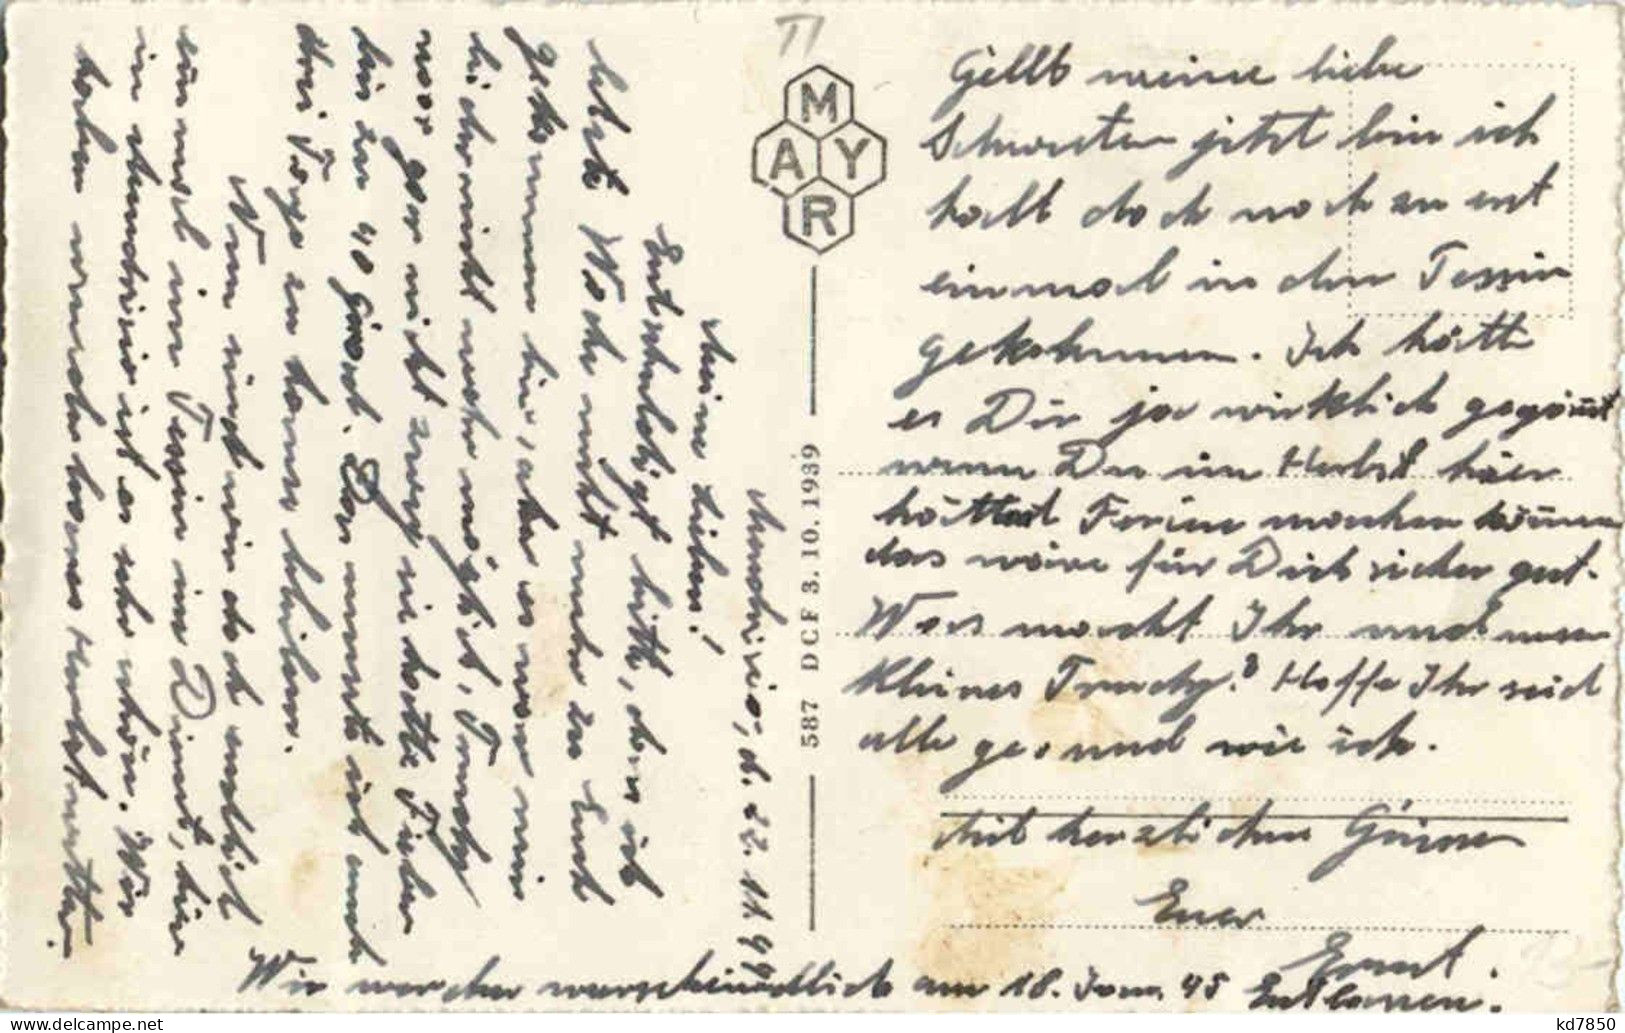 Mendrisio, d. 22. 11. 44
Meine Lieben!
Entschuldigt bitte, dass ich
letzte Woche nicht mehr zu Euch
gekommen bin, aber es war mir
leider nicht mehr möglich, Trudy
war gar nicht zweg sie hatte Fieber
bis zu 40 Grad. Das musste ich auch
drei Tage zu hause bleiben.
Nun sind wir doch endlich
einmal im Tessin im Dienst, hier
in Mendrisio ist es sehr schön. Wir
haben wunderbares Herbstwetter.
MAYR
587 DCF 3. 10. 1939
Gellt meine liebe
Schwester jetzt bin ich
halt doch noch zu erst
einmal in den Tessin
gekohmmen. Ich hätte
es Dir ja wirklich gegönnt
wenn Du im Herbst hier
hättest Ferien machen können
das wäre für Dich sicher gut.
Was macht Ihr und unser
kleines Trudy? Hoffe Ihr seid
alle gesund wie ich.
Mit herzlichen Grüssen
Euer
Ernst.
Wir werden warscheindlich am 18. Jan. 45 Entlassen.
kd7850